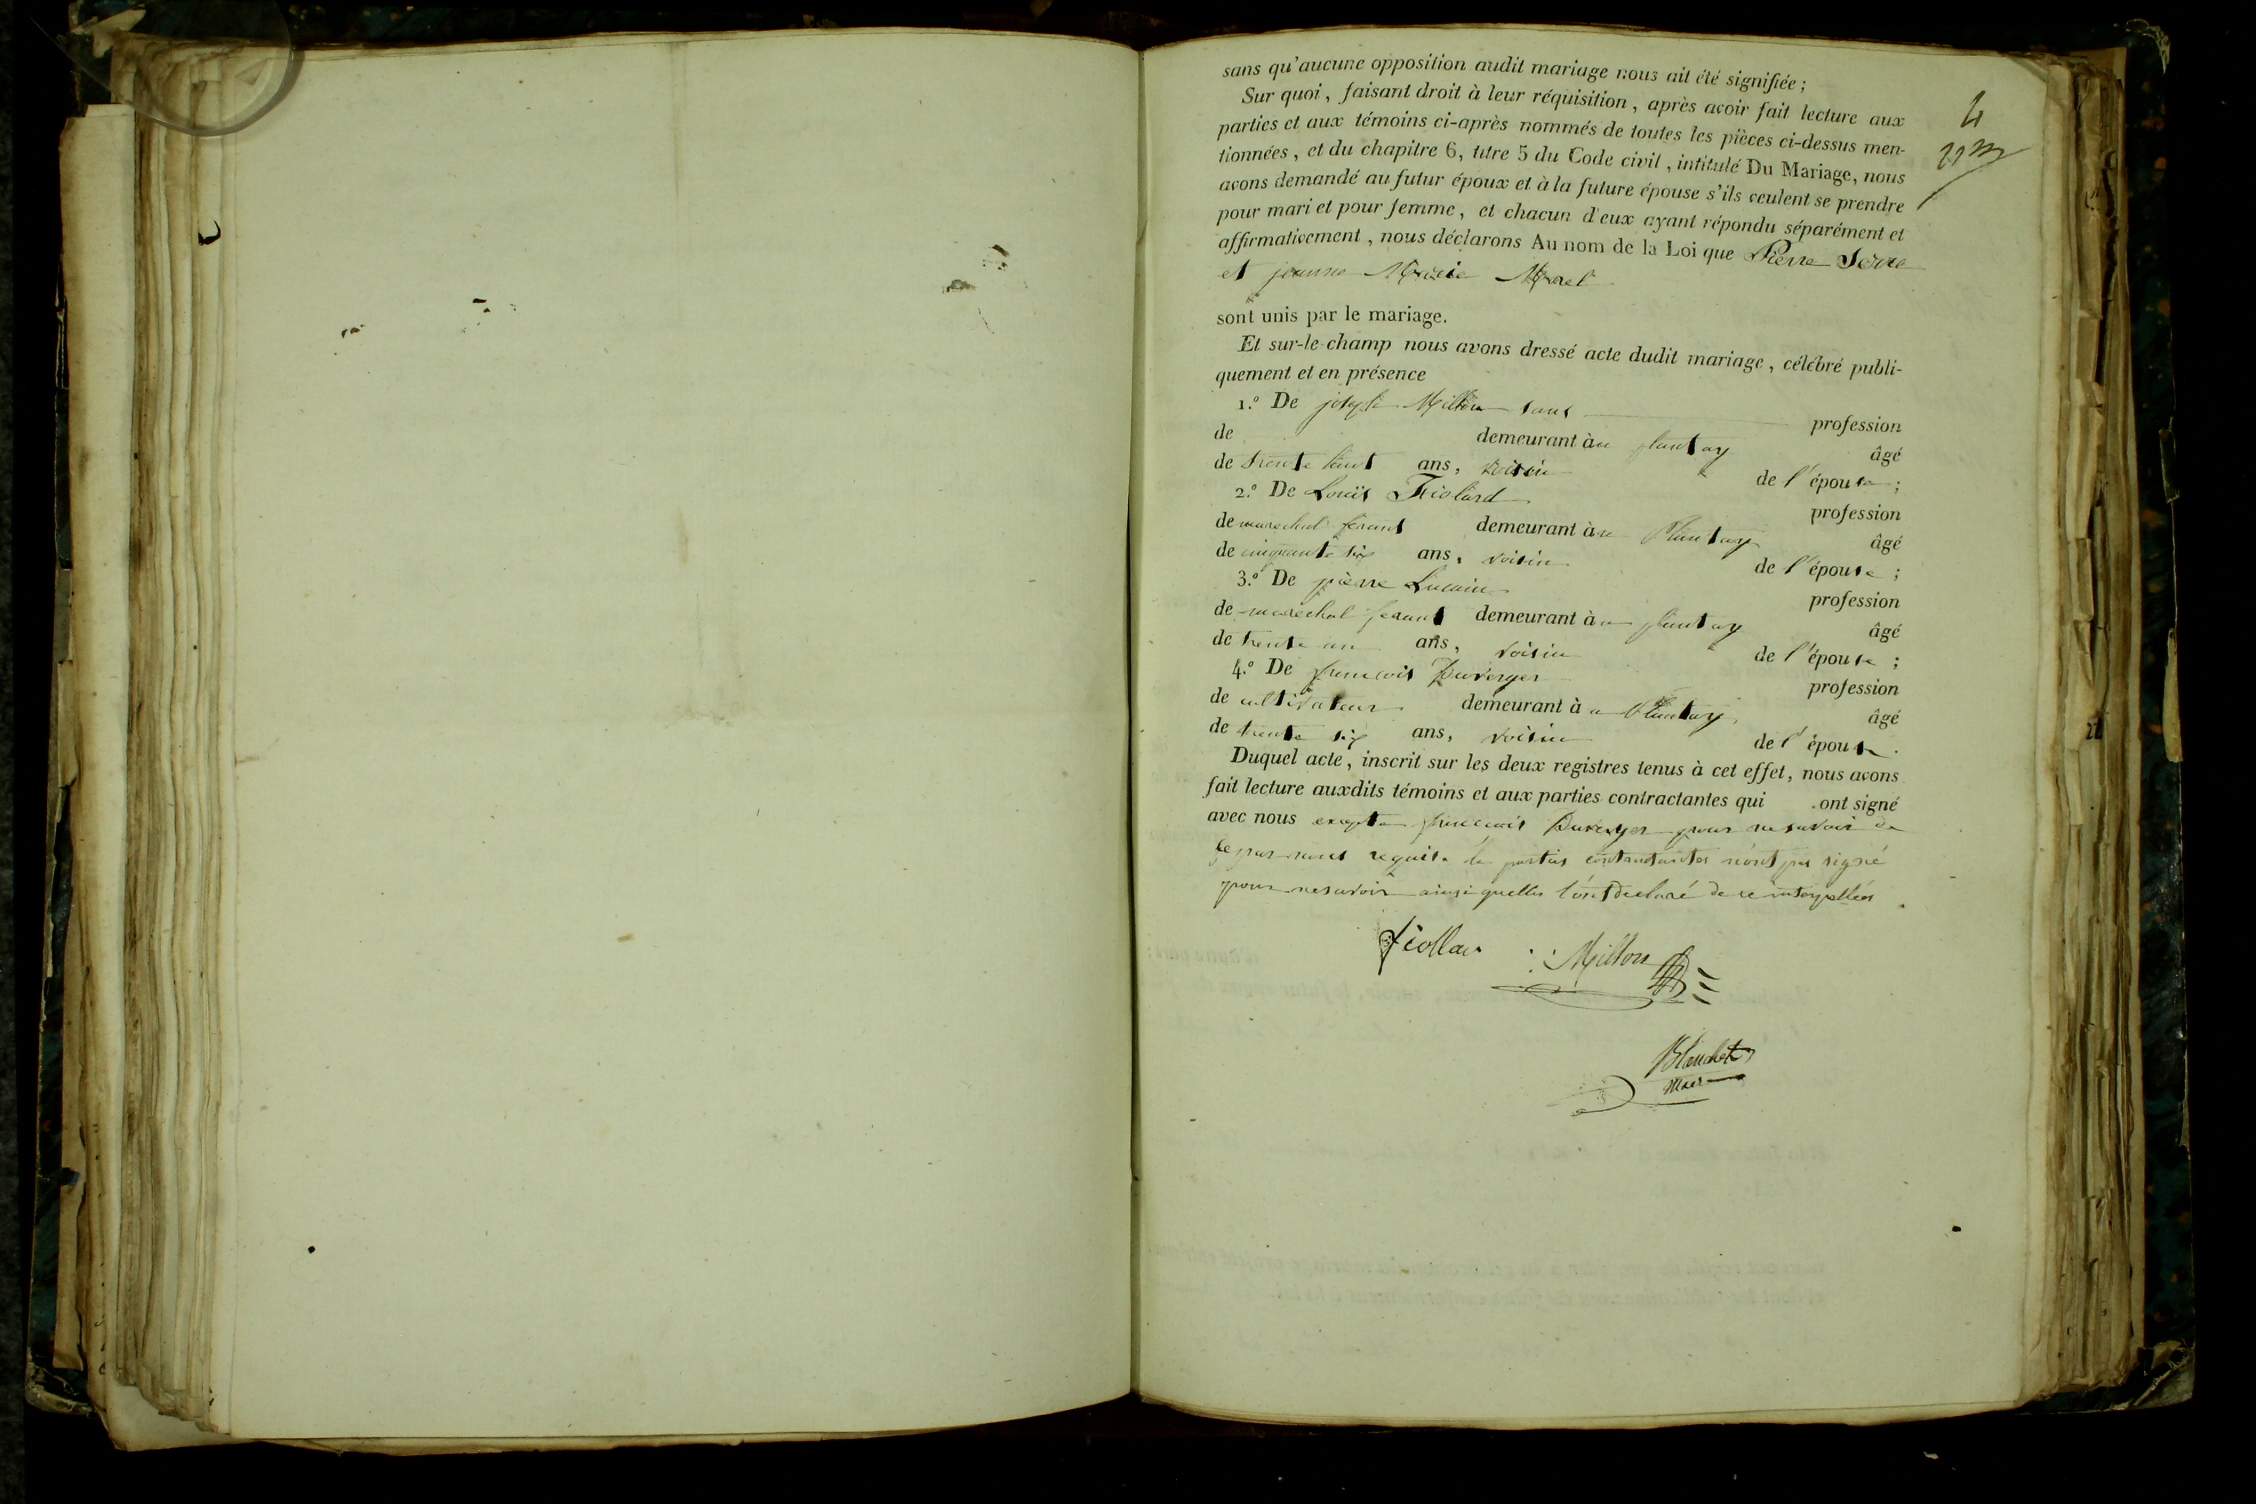 sans qu'aucune opposition audit mariage nous ait été signifiée ;
Sur quoi, faisant droit à leur réquisition, après avoir fait lecture aux
parties et aux témoins ci-après nommés de toutes les pièces ci-dessus men-
tionnées, et du chapitre 6, titre 5 du Code civil, intitulé Du Mariage, nous
avons demandé au futur époux et à la future épouse s'ils veulent se prendre
pour mari et pour femme, et chacun d'eux ayant répondu séparément et
affirmativement, nous déclarons Au nom de la Loi que Pierre Serre
et jeanne Marie Morel
sont unis par le mariage.
Et sur-le-champ nous avons dressé acte dudit mariage, célébré publi-
quement et en présence
1.° De joseph Millon sans profession
de demeurant à u plantay âgé
de trente huit ans, voisin de l'épouse ;
2.° De Louis Fiolard profession
de marechal ferant demeurant à u Plantay âgé
de cinquante six ans, voisin de l'épouse ;
3.° De pierre profession
de marechal ferant demeurant à u plantay âgé
de trente un ans, voisin de l'épouse ;
4.° De francois Duverger profession
de cultivateur demeurant à u Plantay âgé
de trente six ans, voisin de l'épouse.
Duquel acte, inscrit sur les deux registres tenus à cet effet, nous avons
fait lecture auxdits témoins et aux parties contractantes qui ont signé
avec nous excepté francois Duverger pour ne savoir de
ce par nous requis. les parties contractantes n'ont pas signé
pour ne savoir ainsi quelles l'ont declaré de ce interpellées
fiollar Millon
Blanchet
maire
4